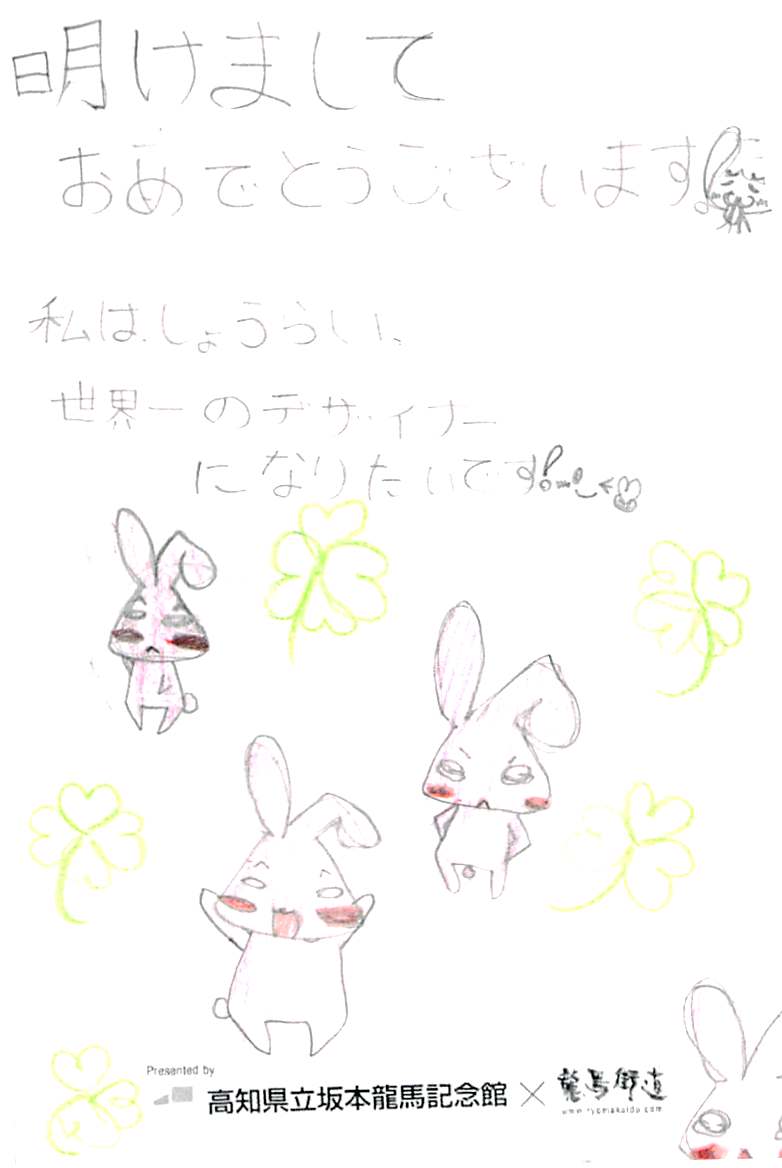 明けまして
おめでとうございます!
私は、しょうらい、
世界一のデザイナー
になりたいです!
Presented by
高知県立坂本龍馬記念館×龍馬街道
www.ryomakaido.com